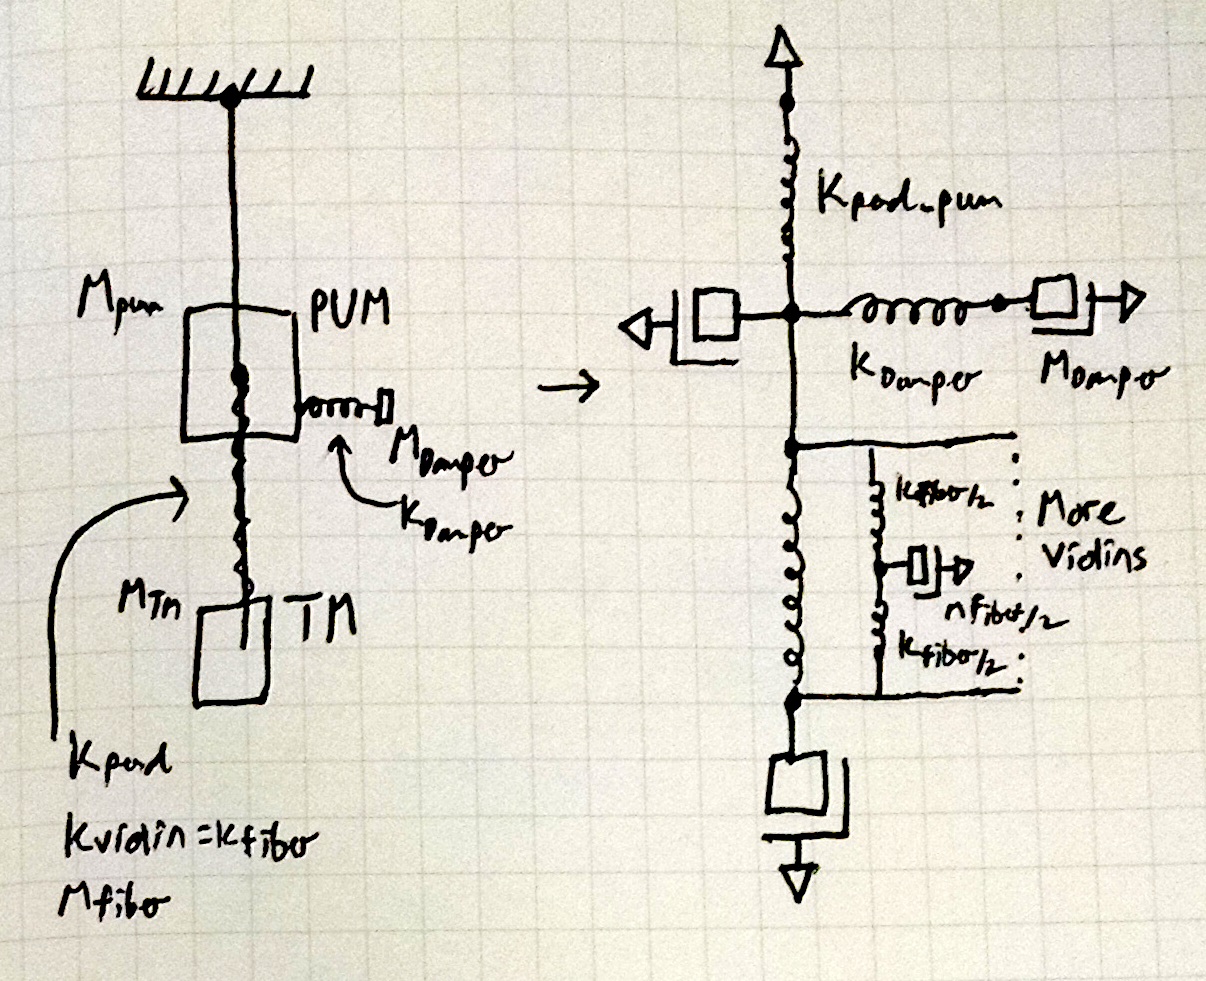 Mpum
PUM
MDamper
KDamper
MTM
TM
Kpend
Kviolin = Kfiber
Mfiber
Kpend-pum
KDamper
MDamper
Kfiber/2
More
Violins
mfiber/2
Kfiber/2